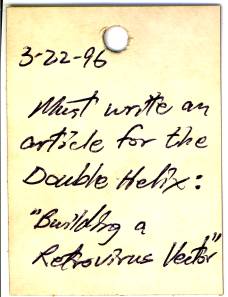 3-22-96
Must write an
article for the
Double Helix:
"Building a
Retrovirus Vector"